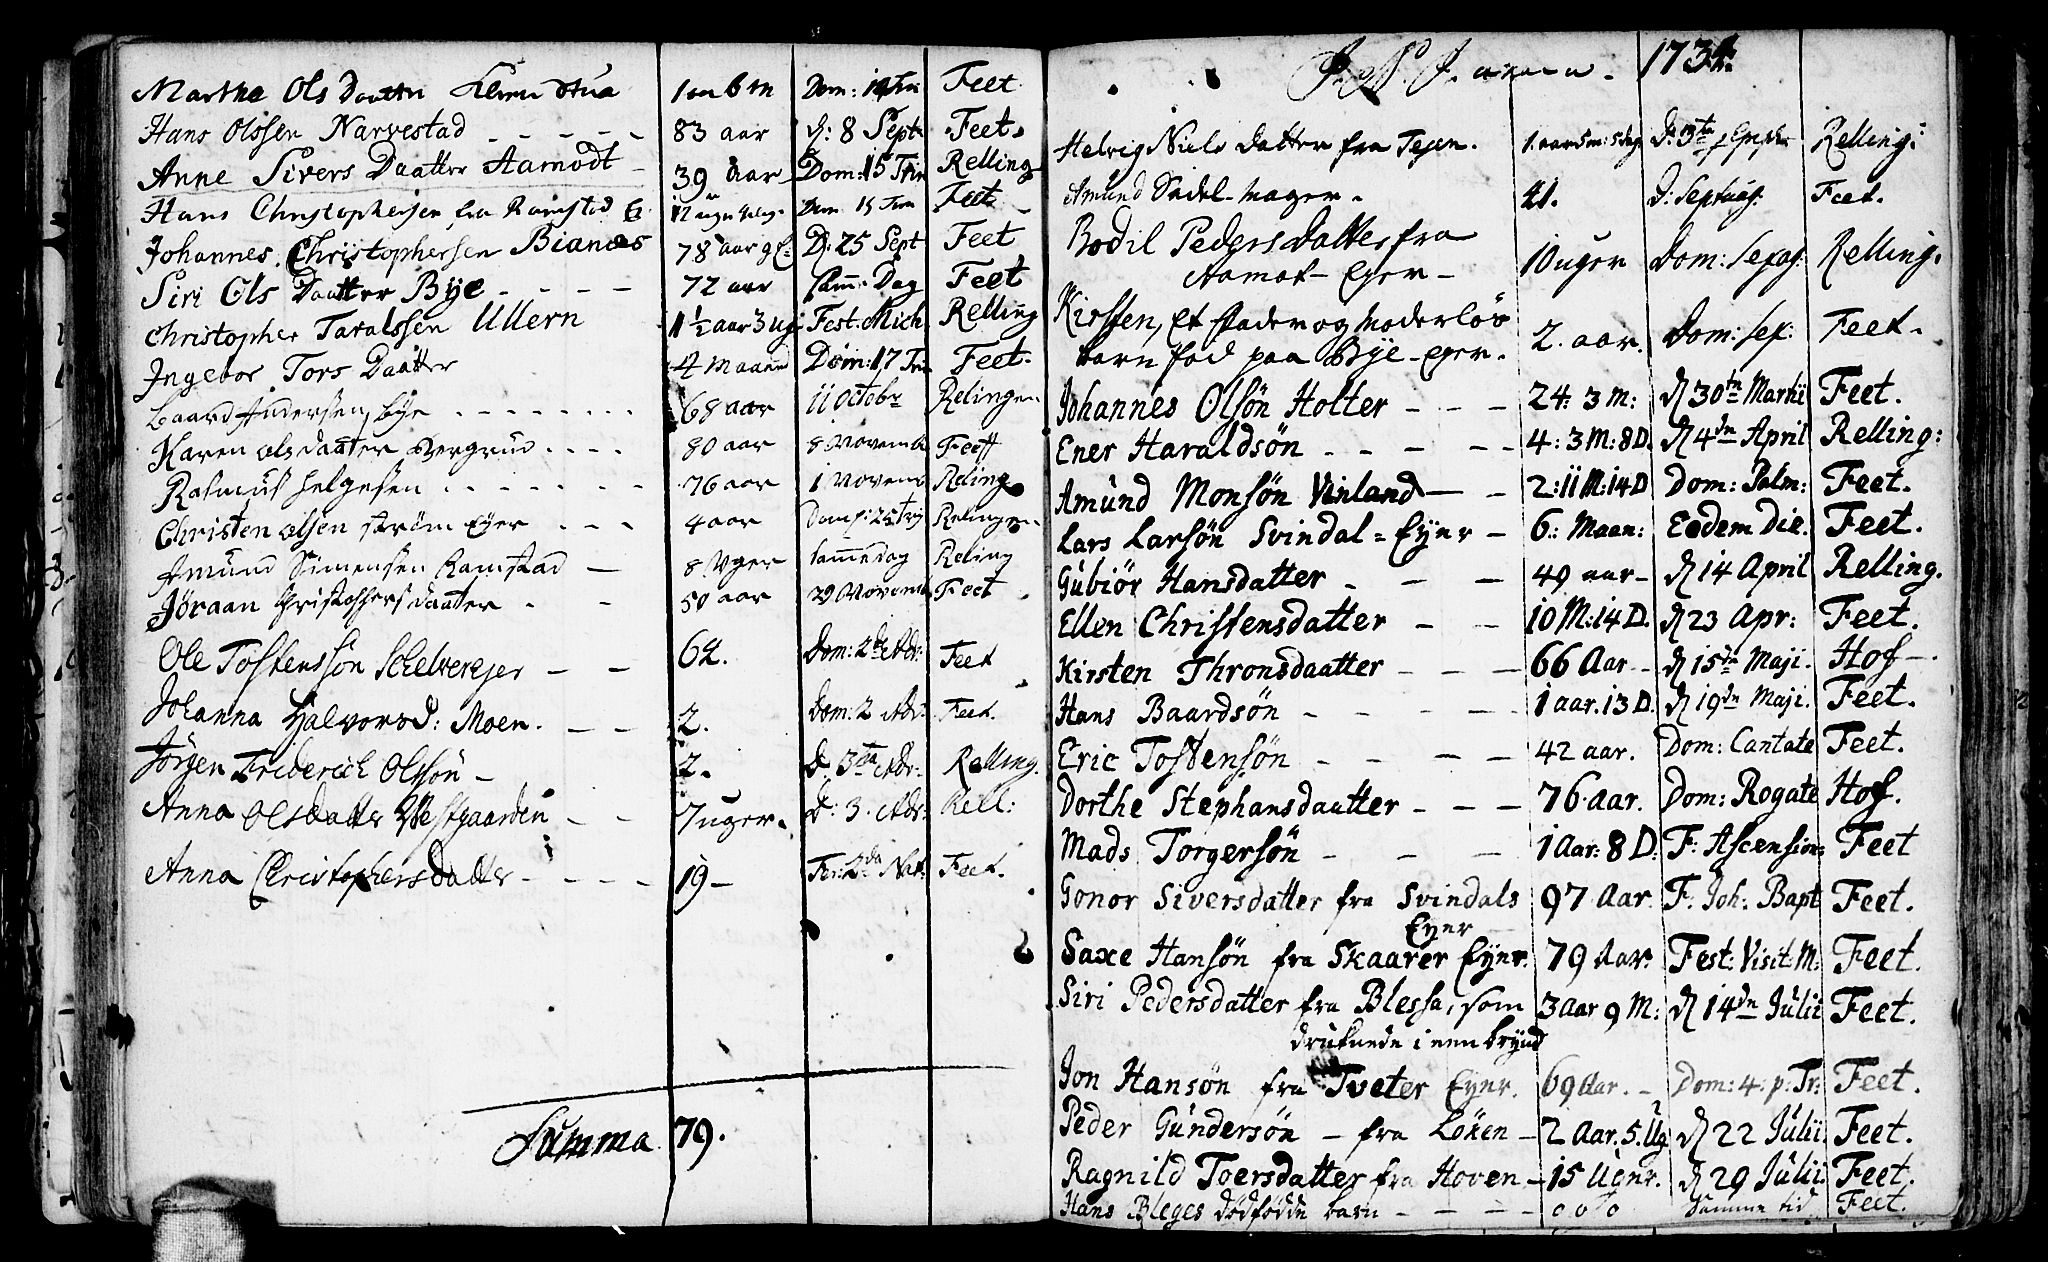 Martha Ols Daatter
1 aar 6 m
Feet
Hans Olssen Narvestad - - - - -
83 aar
D: 8 Sept
Feet
Anne Sivers Daatter Aamodt
39 aar
Dom: 15 Trin
Relling
Hans Christophersen fra Ramstad
12 uger
Dom 15 Trin
Feet
Johannes Christophersen Bianes
78 aar
D: 25 Sept
Feet
Siri Ols Daatter Bye - - - -
72 aar
samme Dag
Feet
Christopher Taralssen Ullern
1 1/2 aar 3 ug
Fest: Mich
Relling
Ingebor Tors Daatter
4 maaned
Dom: 17 Tri
Feet
Baard Andersen, bye - - - - - - - -
68 aar
11 Octobr
Relingen
Karen olsdaatter Bergrud - - - -
80 aar
8 Novemb
Feet
Rasmus Helgesen - - - - - - -
76 aar
1 Novemb
Reling
Christen olsen strøm Eyer - - -
4 aar
Relingen
Amund Simensen Ramstad -
8 Uger
sammedag
Reling
Jöraan Christophersdaatter - -
50 aar
29 Novemb
Feet
Ole Tostenssön Schelvereyer - -
62.
Dom: 2de Adv:
Feet
Johanna Halvorsd: Moen. - -
2.
Dom: 2 Adv:
Feet.
Jörgen Friderich Olssön -
2.
D. 3tia Adv:
Relling.
Anna Olsdatter Westgaarden - -
7 uger.
D: 3. Adv:
Rell:
Anna Christophersdatter - - - -
19 -
Fer: 2da Nat:
Feet.
Summa 79.
1734.
Helvig Niels datter fra Tejen.
Relling:
Amund Sadelmager.
41.
D: Septuag:
Feet.
Bodil Peders datter fra
Aamot - Eger -
10 uger
Dom: Sexag:
Relling.
Kirsten, Et fader og moderløs
barn fød paa Bye-Eger.
2. aar.
Dom: sex:
Feet.
Johannes Olsön Holter - - -
24: 3 M:
D 30te Martii
Feet.
Ener Haraldsön - - - - -
4: 3 M: 8 D.
D 4de April
Relling:
Amünd Monsön Vinland - -
2: 11 M: 14 D
Dom: Palm:
Feet.
Lars Larsön Svindal = Eyer -
6: Maan:
Eodem Die.
Feet.
Gübiör Hansdatter - - -
49 aar -
D 14 April
Relling.
Ellen Christensdatter - -
10 M: 14 D.
D 23 Apr:
Feet.
Kirsten Thronsdaatter - - -
66 Aar -
D 15de Maji.
Hof -
Hans Baardsön - - - - -
1 aar. 13 D.
D 19de Maji.
Feet.
Eric Tostensön - - - -
42 aar.
Dom: Cantate
Feet.
Dorthe Stephansdaatter - - -
76. Aar.
Dom: Rogate
Hof.
Mads Torgersön - - -
1 Aar: 8 D.
F: Ascension:
Feet
Gonor Siversdatter fra Svindals
Eyer
97 Aar
F: Joh: Bapt
Feet.
Saxe Hansön fra Skaarer Eyer.
79 Aar.
Fest: Visit: M:
Feet.
Siri Pedersdatter fra Blessa, som
druknede i een brynd
3 Aar 9 M:
D 14de Julii
Feet.
Jon Hansön fra Tveter Eyer.
69 Aar. -
Dom: 4: p: Tr:
Feet.
Peder Gündersön - fra Löken -
2 Aar. 5. Ug
D 22 Julii.
Feet.
Ragnild Toersdatter fra Hoven -
15 Uger.
D 29 Julii.
Feet.
Hans Bleges dødfødde barn - - - -
o o o
Samme tid
Feet.